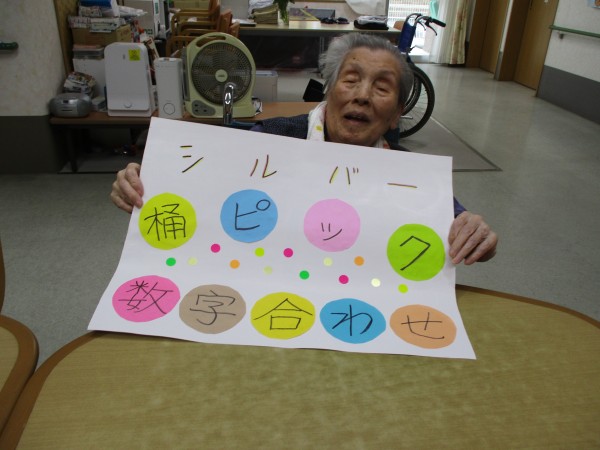 シルバー
桶ピック
数字合わせ